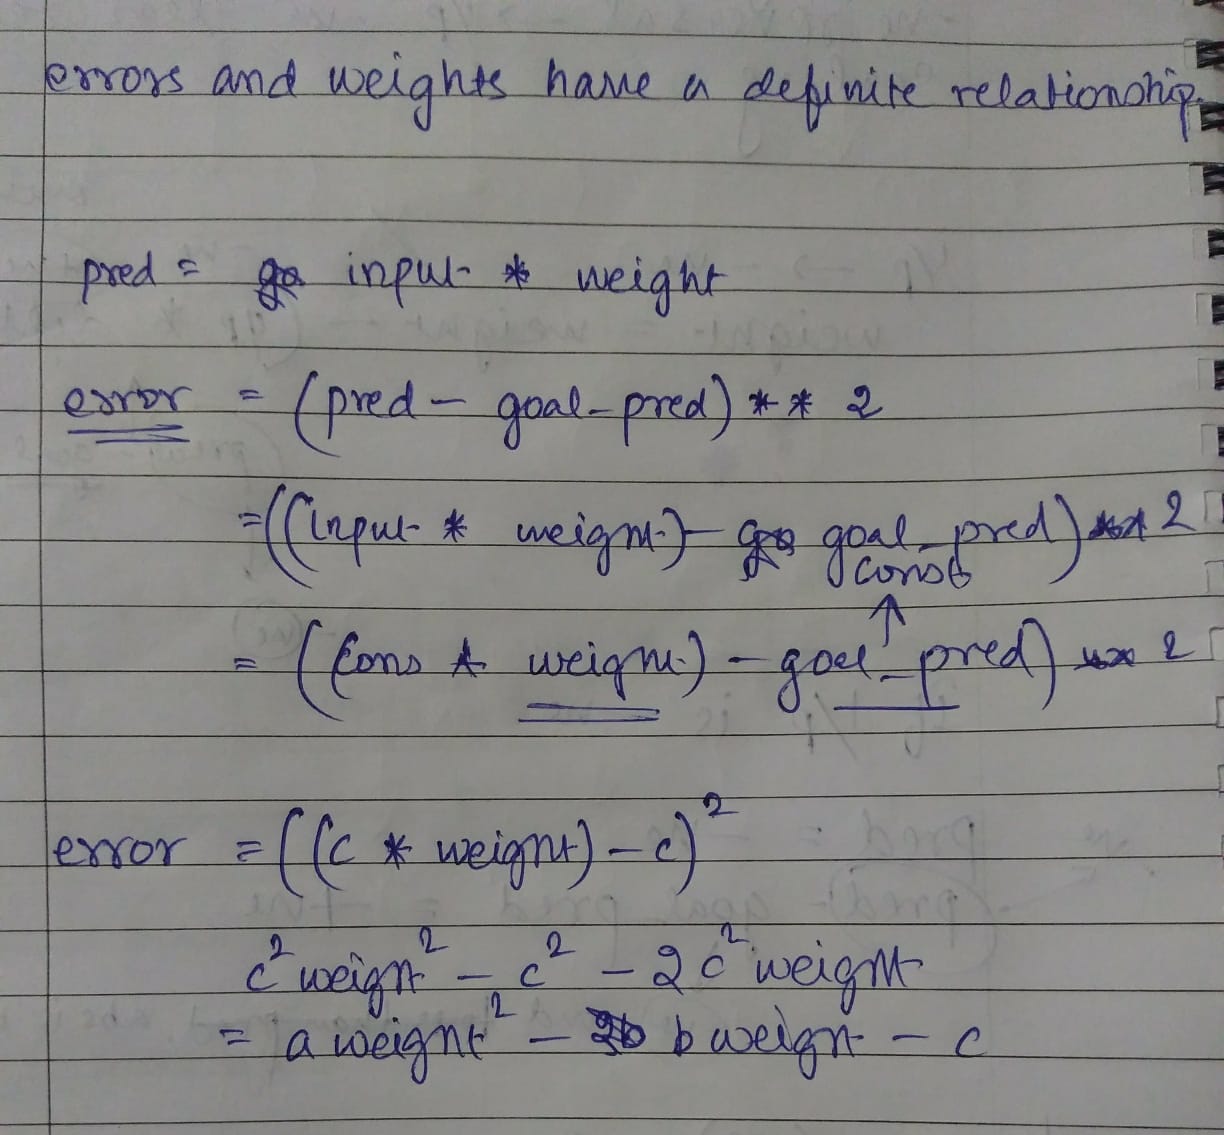 errors and weights have a definite relationship.
pred = input * weight
error = (pred - goal_pred) ** 2
= ((input * weight) - goal_pred) ** 2
const
↑
= ((cons * weight) - goal_pred) ** 2
error = ((c * weight) - c)²
c² weight² - c² - 2c² weight
= a weight² - b weight - c